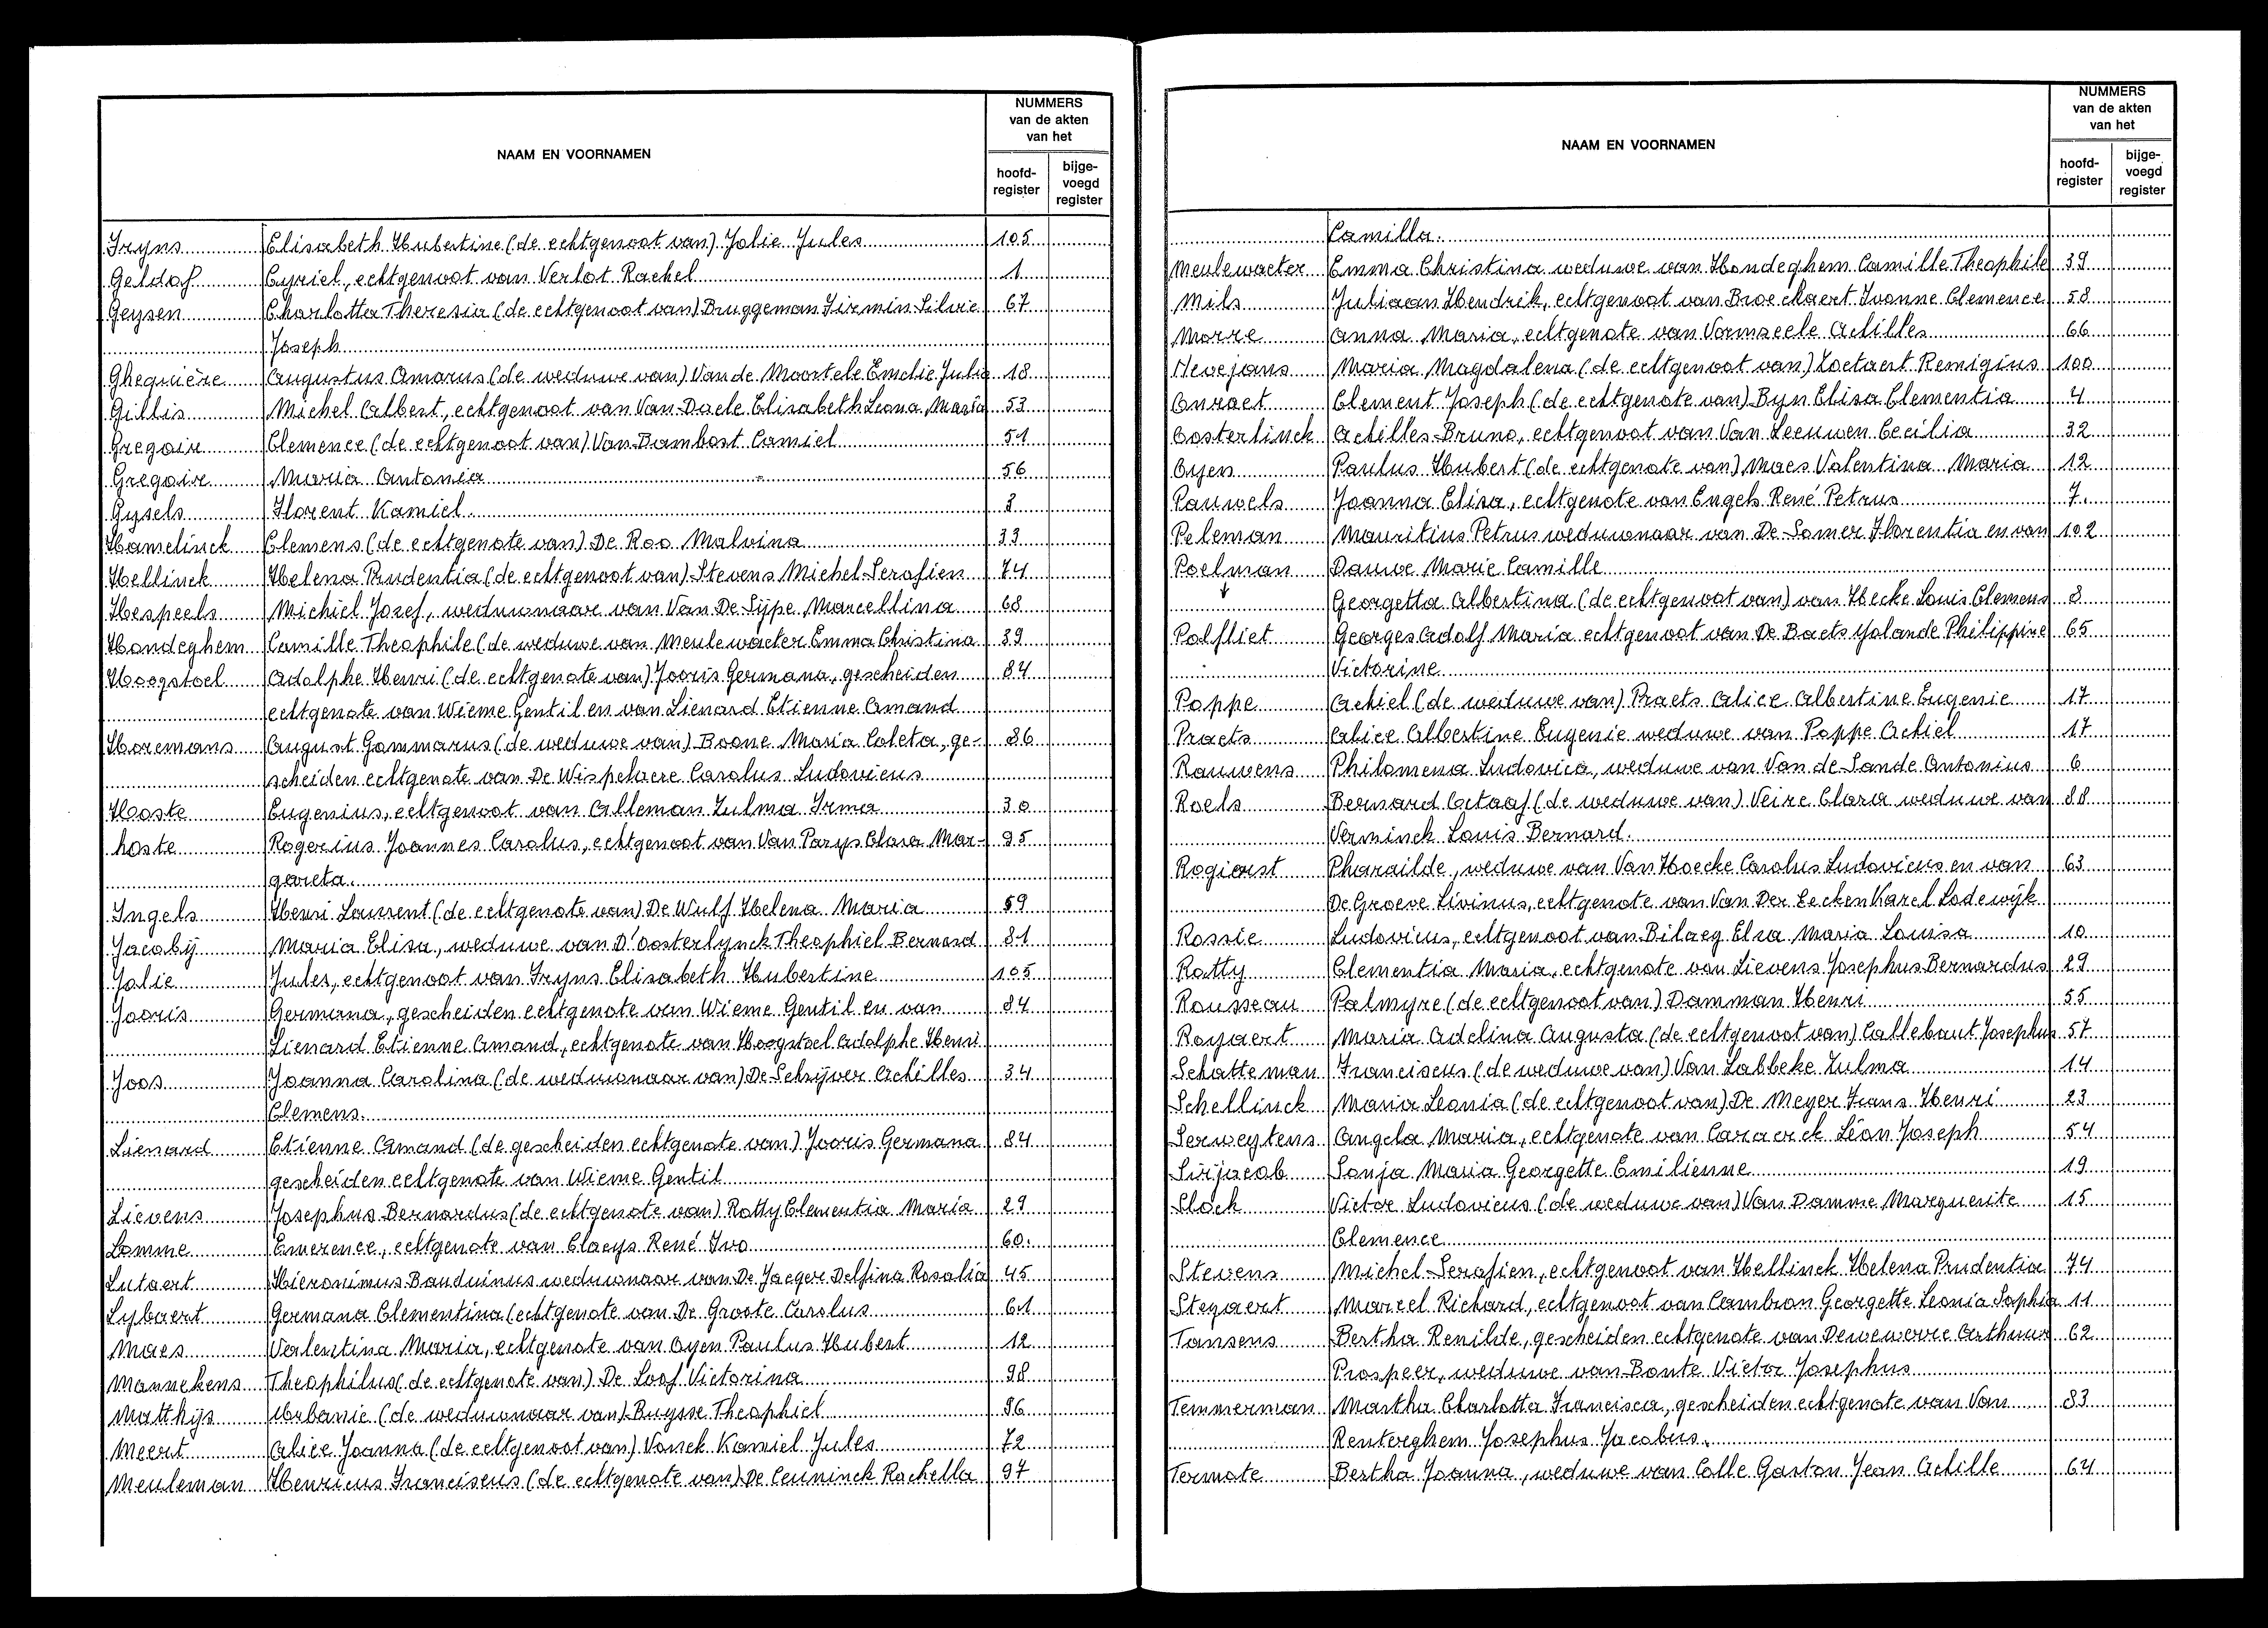 NAAM EN VOORNAMEN
NUMMERS
van de akten
van het
hoofd-
register
bijge-
voegd
register
Fryns Elisabeth Hubertine (de echtgenoot van) Jolie Jules 105
Geldof Cyriel, echtgenoot van Verlot Rachel 1
Geysen Charlotta Theresia (de echtgenoot van) Bruggeman Firmin Silvie 67
Joseph
Ghequière Augustus Amarus (de weduwe van) Van de Moortele Emelie Julia 18
Gillis Michel Albert, echtgenoot van Van Daele Elisabeth Leona Maria 53
Gregoir Clemence (de echtgenoot van) Van Bambost Camiel 51
Gregoir Maria Antonia 56
Gysels Florent Kamiel 3
Hamelinck Clemens (de echtgenote van) De Roo Malvina 33
Hellinck Helena Prudentia (de echtgenoot van) Stevens Michel Serafien 74
Hespeels Michiel Jozef, weduwnaar van Van De Sijpe Marcellina 68
Hondeghem Camille Theophile (de weduwe van Meulewaeter Emma Christina 39
Hoogstoel Adolphe Henri (de echtgenote van) Jooris Germana, gescheiden 84
echtgenote van Wieme Gentil en van Lienard Etienne Amand
Horemans August Gommarus (de weduwe van) Boone Maria Coleta, ge- 86
scheiden echtgenote van De Wispelaere Carolus Ludovicus
Hoste Eugenius, echtgenoot van Alleman Zulma Irma 30
hoste Rogerius Joannes Carolus, echtgenoot van Van Parys Clara Mar- 95
gareta.
Ingels Henri Laurent (de echtgenote van) De Wulf Helena Maria 59
Jacobij Maria Elisa, weduwe van D'oosterlynck Theophiel Bernard 81
Jolie Jules, echtgenoot van Fryns Elisabeth Hubertine 105
Jooris Germana, gescheiden echtgenote van Wieme Gentil en van 84
Lienard Etienne Amand, echtgenote van Hoogstoel Adolphe Henri
Joos Joanna Carolina (de weduwnaar van) De Schrijver Achilles 34
Clemens.
Lienard Etienne Amand (de gescheiden echtgenote van) Jooris Germana 84
gescheiden echtgenote van Wieme Gentil
Lievens Josephus Bernardus (de echtgenote van) Rotty Clementia Maria 29
Lomme Emerence, echtgenote van Claeys René Ivo 60.
Lutaert Hieronimus Bauduinus weduwnaar van De Jaeger Delfina Rosalia 45
Lybaert Germana Clementina (echtgenote van De Groote Carolus 61
Maes Valentina Maria, echtgenote van Oyen Paulus Hubert 12
Mannekens Theophilus (de echtgenote van) De Loof Victorina 98
Matthijs Urbanie (de weduwnaar van) Buysse Theophiel 96
Meert Alice Joanna (de echtgenoot van) Vonck Kamiel Jules 72
Meuleman Henricus Franciscus (de echtgenote van) De Ceuninck Rachella 97
NAAM EN VOORNAMEN
NUMMERS
van de akten
van het
hoofd-
register
bijge-
voegd
register
Camilla.
Meulewaeter Emma Christina weduwe van Hondeghem Camille Theophile 39
Mils Juliaan Hendrik, echtgenoot van Broeckaert Ivonne Clemence 58
Morre Anna Maria, echtgenote van Vormzeele Achilles 66
Nevejans Maria Magdalena (de echtgenoot van) Loetaert Remigius 100
Onraet Clement Joseph (de echtgenote van) Byn Elisa Clementia 4
Oosterlinck Achilles Bruno, echtgenoot van Van Leeuwen Cecilia 32
Oyen Paulus Hubert (de echtgenote van) Maes Valentina Maria 12
Pauwels Joanna Eliza, echtgenote van Engels René Petrus 7.
Peleman Mauritius Petrus weduwnaar van De Somer Florentia en van 102
Poelman Dauwe Marie Camille
Georgetta Albertina (de echtgenoot van) van Hecke Louis Clemens 8
Polfliet Georges Adolf Maria echtgenoot van De Baets Yolande Philippine 65
Victorine
Poppe Achiel (de weduwe van) Praets Alice Albertine Eugenie 17
Praets Alice Albertine Eugenie weduwe van Poppe Achiel 17
Rauwens Philomena Ludovica, weduwe van Van de Sande Antonius 6
Roels Bernard Octaaf (de weduwe van) Veire Clara weduwe van 88
Verninck Louis Bernard.
Rogiorst Pharaïlde, weduwe van Van Hoecke Carolus Ludovicus en van 63
De Groeve Livinus, echtgenote van Van Der Eecken Karel Lodewijk
Rossie Ludovicus, echtgenoot van Bilaey Elza Maria Louisa 10
Rotty Clementia Maria, echtgenote van Lievens Josephus Bernardus 29
Rousseau Palmyre (de echtgenoot van) Damman Henri 55
Royaert Maria Adelina Augusta (de echtgenoot van) Callebaut Josephus 57
Schatteman Franciscus (de weduwe van) Van Labbeke Zulma 14
Schellinck Maria Leonia (de echtgenoot van) De Meyer Frans Henri 23
Serweytens Angela Maria, echtgenote van Caraerck Léon Joseph 54
Sirjacob Sonja Maria Georgette Emilienne 19
Slock Victor Ludovicus (de weduwe van) Van Damme Marguerite 15
Clemence
Stevens Michel Serafien, echtgenoot van Hellinck Helena Prudentia 74
Steyaert Marcel Richard, echtgenoot van Cambron Georgette Leonia Sophia 11
Tansens Bertha Renilde, gescheiden echtgenote van Dewewerre Arthuur 62
Prospeer, weduwe van Bonte Victor Josephus
Temmerman Martha Charlotta Francisca, gescheiden echtgenote van Van 83
Renterghem Josephus Jacobus.
Termote Bertha Joanna, weduwe van Colle Gaston Jean Achille 64